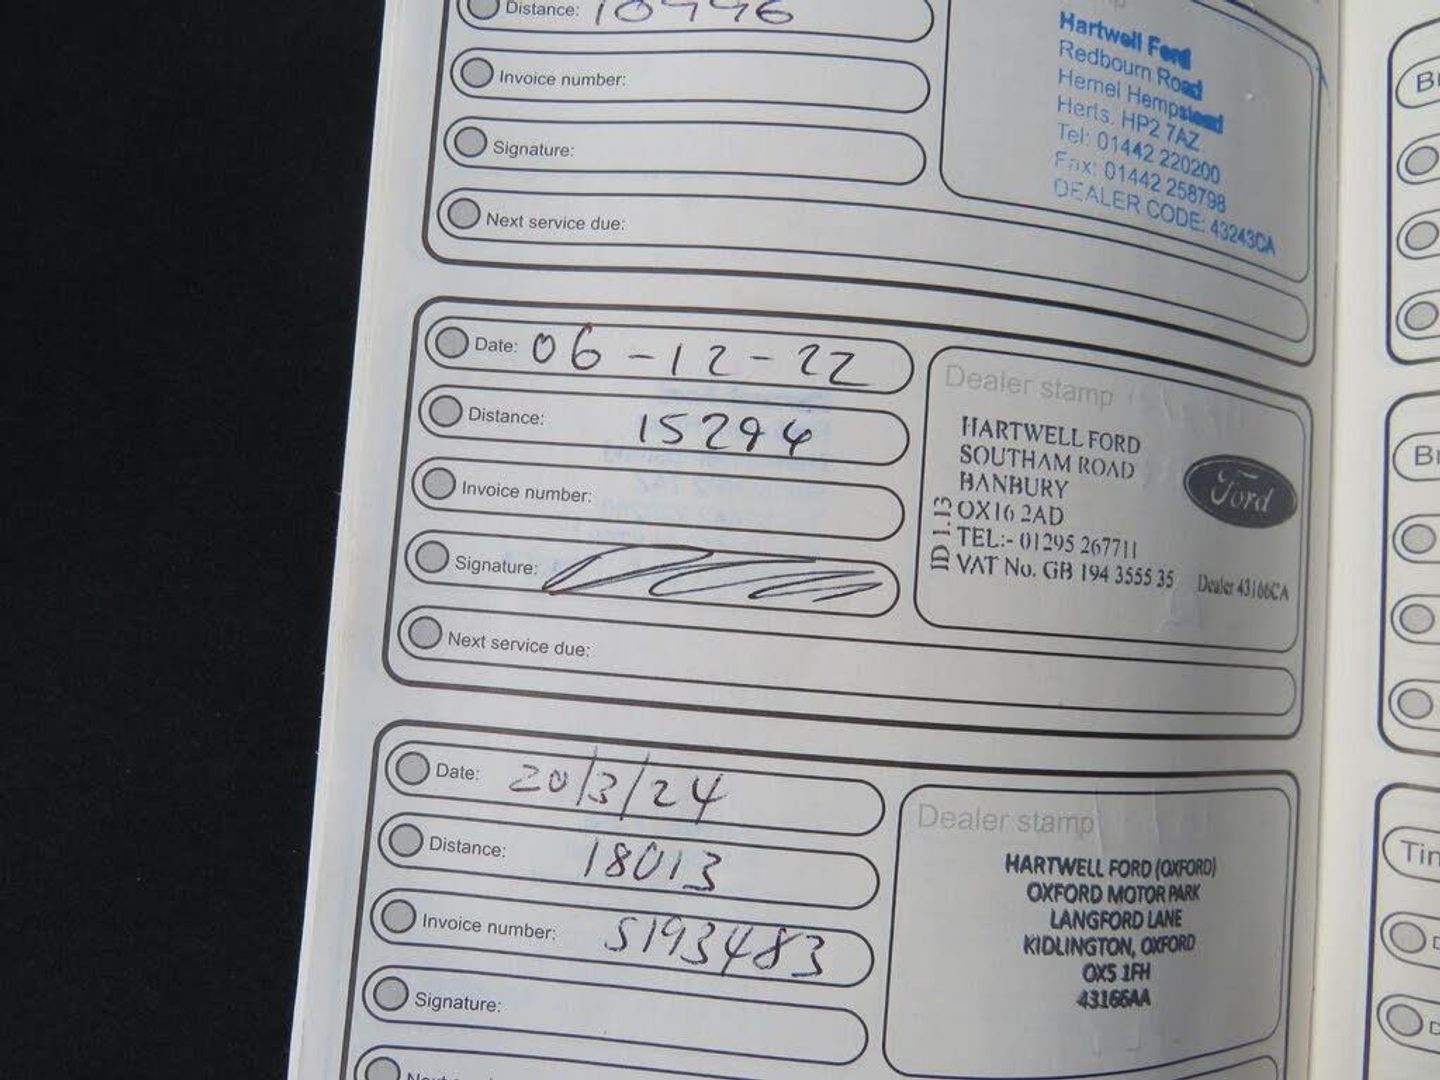 Distance:
Hartwell Ford
Redbourn Road
Hemel Hempstead
Herts. HP2 7AZ
Tel: 01442 220200
Fax: 01442 258798
DEALER CODE: 43243CA
Invoice number:
Signature:
Next service due:
Date: 06-12-22
Distance: 15294
Invoice number:
Signature:
Next service due:
Dealer stamp
HARTWELL FORD
SOUTHAM ROAD
BANBURY
OX16 2AD
TEL:- 01295 267711
VAT No. GB 194 3555 35
ID 1.13
Ford
Dealer 43166CA
Date: 20/3/24
Distance: 18013
Invoice number: S193483
Signature:
Dealer stamp
HARTWELL FORD (OXFORD)
OXFORD MOTOR PARK
LANGFORD LANE
KIDLINGTON, OXFORD
OX5 1FH
43166AA